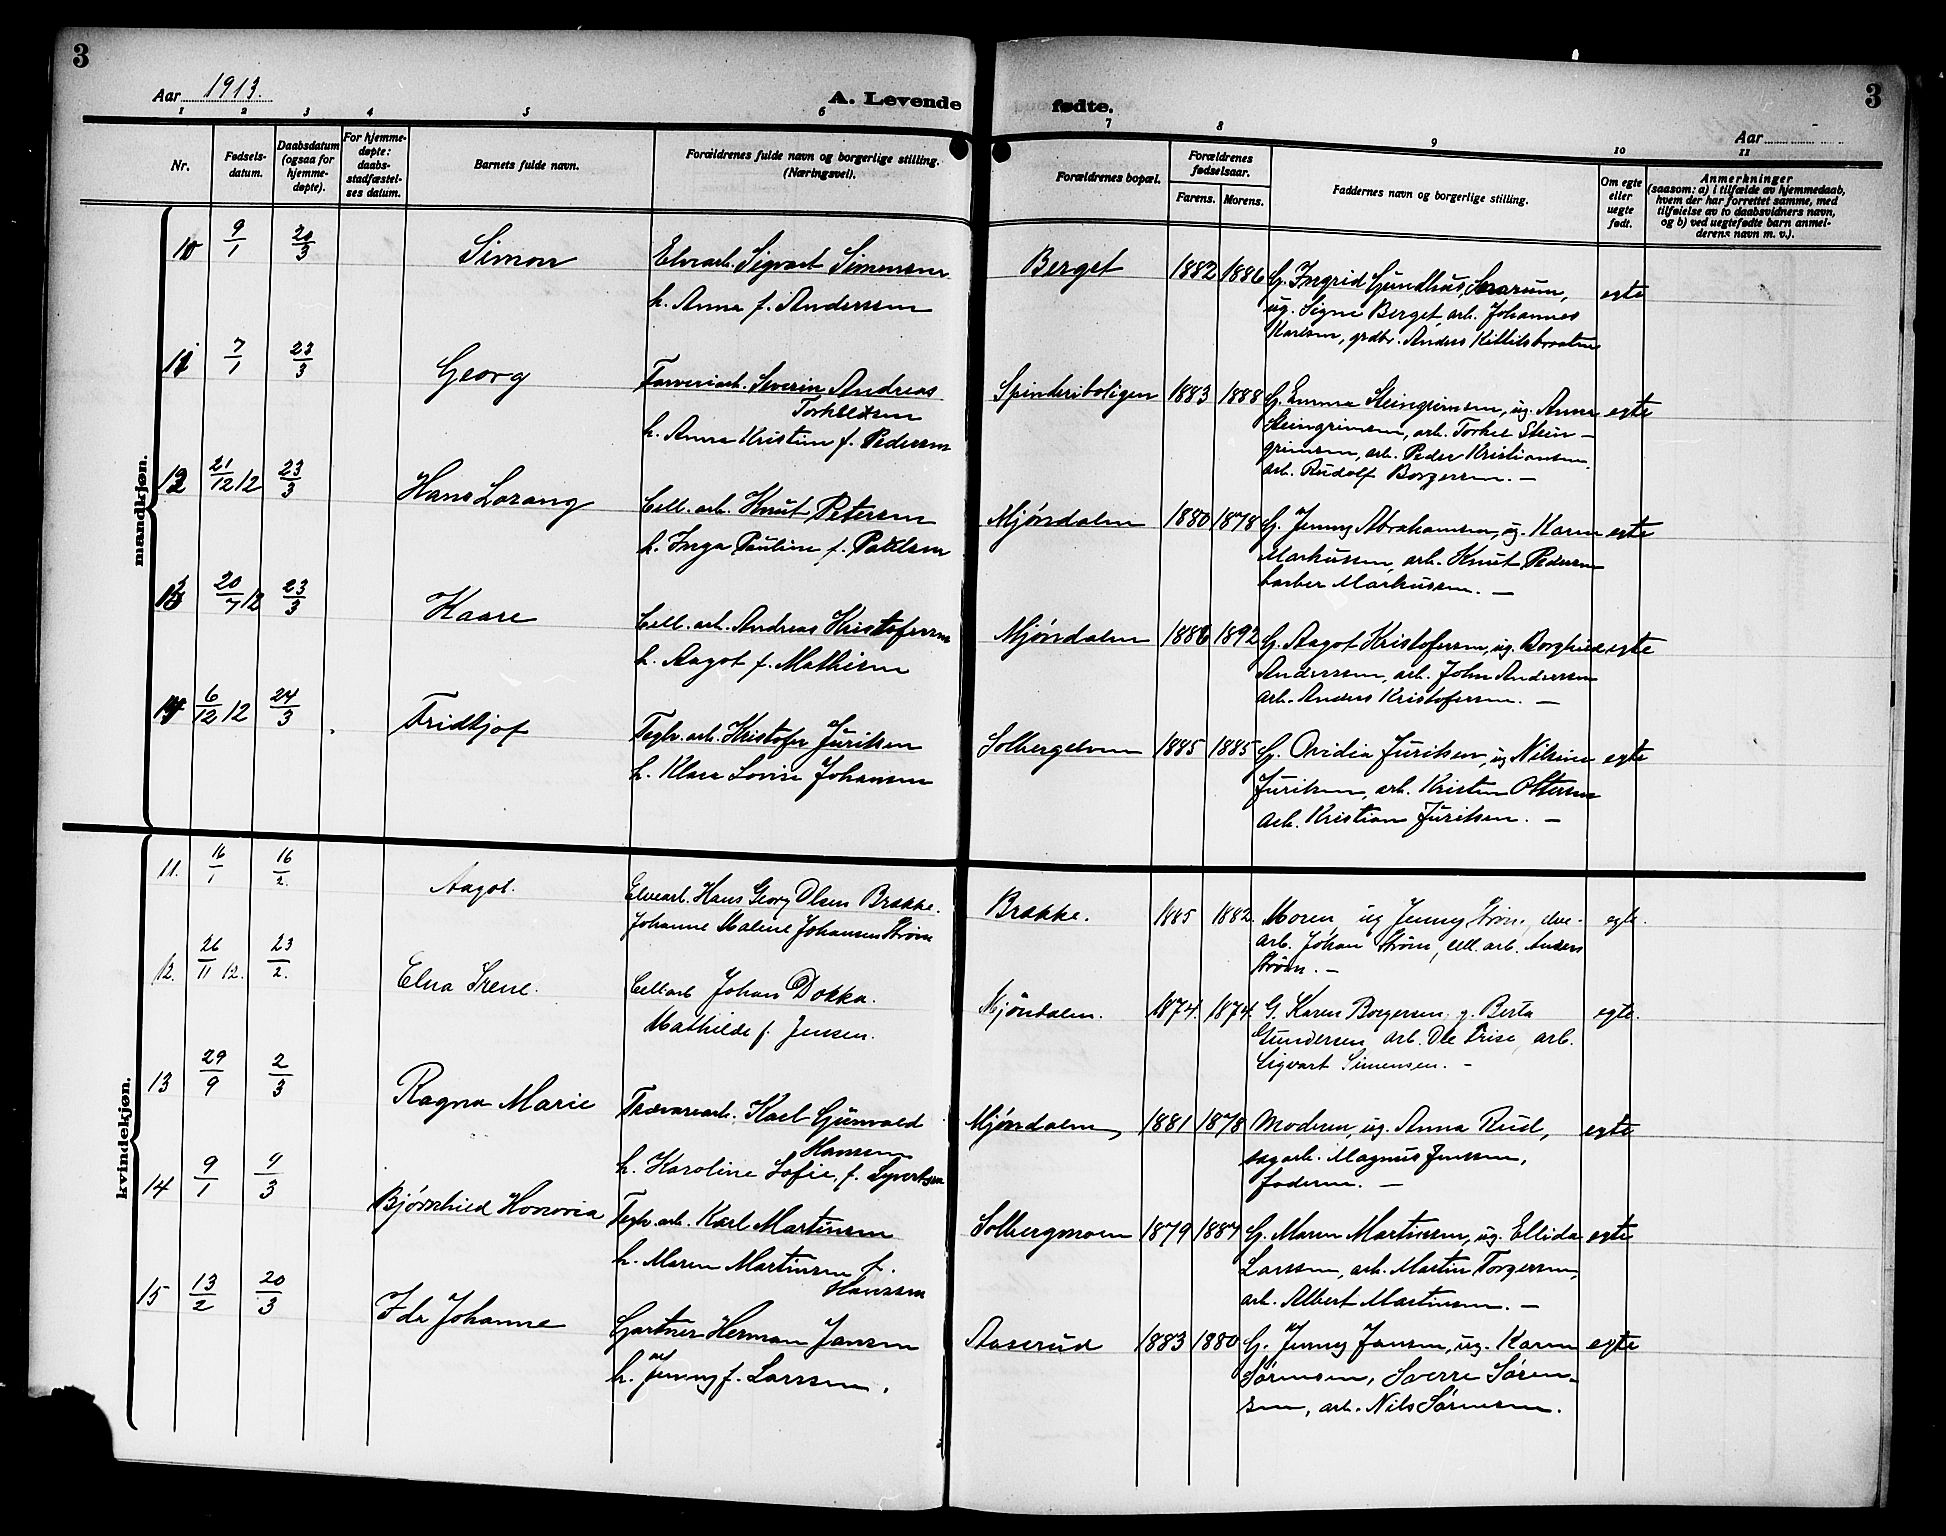 3
3
Aar 1913.
A. Levende fødte.
Aar
1 2 3 4 5 6 7 8 9 10 11
Nr.
Fødsels-
datum.
Daabsdatum
(ogsaa for
hjemme-
døpte).
For hjemme-
døpte:
daabs-
stadfæstel-
ses datum.
Barnets fulde navn.
Forældrenes fulde navn og borgerlige stilling.
(Næringsvei).
Forældrenes bopæl.
Forældrenes
fødselsaar.
Farens. Morens.
Faddernes navn og borgerlige stilling.
Om egte
eller
uegte
født.
Anmerkninger
(saasom: a) i tilfælde av hjemmedaab,
hvem der har forrettet samme, med
tilføielse av to daabsvidners navn,
og b) ved uegtefødte barn anmel-
derens navn m. v.).
mandkjøn.
10 9/1 20/3 Simon Elvearb. Sigvart Simensen Berget 1882 1886 G. Ingrid Gundhus, Snarum, egte
h. Anna f. Anderssen
ug. Signe Berget arb. Johannes
Karlsen, grdbr. Anders Killilsbraaten
11 7/1 23/3 Georg Farveriarb. Severin Andreas Spinderiboligen 1883 1888 G. Emma Steingrimsen, ug. Anna egte
Torkelsen
h. Anna Kristine f. Pedersen
Steingrimsen, arb. Torkel Stein-
grimsen, arb. Peder Kristiansen,
arb. Rudolf Borgersen. —
12 21/12 12 23/3 Hans Lorang Cell. arb. Knut Petersen Mjøndalen 1880 1878 G. Jenny Abrahamsen, ug. Karen egte
h. Inga Pauline f. Paulsen
Markussen, arb. Knut Pedersen
barber Markussen. —
13 20/7 12 23/3 Kaare Cell. arb. Andreas Kristofersen Mjøndalen 1886 1892 G. Aagot Kristofersen, ug. Borghild egte
h. Aagot f. Mathisen
Anderssen, arb. John Anderssen
arb. Anders Kristofersen. —
14 6/12 12 24/3 Fridtjof Teglv. arb. Kristofer Juriksen Solbergelven 1885 1885 G. Ovidia Juriksen, ug Nilsine egte
h. Klara Lovise Johansen
Juriksen, arb. Kristen Ottersen
arb. Kristian Juriksen. —
kvindekjøn.
11. 16/1 16/2. Aagot. Elvearb. Hans Georg Olsen Brække. Brække. 1885 1882. Moren, ug Jenny Strøm, elve- egte.
Johanne Malene Johansen Strøm
arb. Johan Strøm, cell. arb. Anders
Strøm. —
12. 26/11 12. 23/2. Elna Irene. Cellarb Johan Dokka. Mjøndalen. 1874. 1874. G. Karen Borgersen, g. Berta egte.
Mathilde f. Jensen.
Gundersen, arb. Ole Frise, arb.
Sigvart Simensen. —
13 29/9 2/3 Ragna Marie Trævarearb. Karl Gunvald Mjøndalen 1881 1878 Moderen, ug. Anna Rud, egte
Hansen
h. Karoline Sofie, f. Syvertsen
sagarb. Magnus Jenssen,
faderen. —
14 9/1 9/3 Bjørnhild Honoria Teglv. arb. Karl Martinsen Solbergmoen 1879 1887 G. Maren Martinsen, ug. Ellida egte
h. Maren Martinsen f.
Hanssen
Larssen, arb. Martin Torgersen,
arb. Albert Martinsen. —
15 13/2 20/3 Ida Johanne Gartner Herman Jansen Aaserud 1883 1880 G. Jenny Jansen, ug. Karen egte
h. Jenny f. Larssen.
Sørensen, Sverre Søren-
sen, arb. Nils Sørensen.